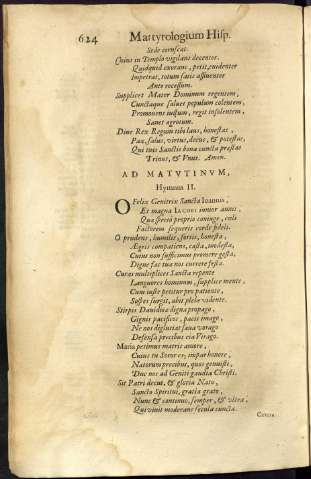 624 Martyrologium Hisp.
Sede coruscat.
Cuius in Templo vigilans decenter.
Quidquid exorans, petit, euidenter
Impetrat, totum satis affluenter
Ante recessum.
Supplicet Mater Dominum regentem,
Cunctaque salues populum colentem,
Promouens iustum, regit insolentem,
Sanet ægrotum.
Diue Rex Regum tibi laus, honestas,
Pax, salus, virtus, decus, & potestas,
Qui tuis Sanctis bona cuncta præstas
Trinus, & Vnus. Amen.
AD MATVTINVM,
Hymnus II.
O Felix Genitrix Sancta Ioannis,
Et magna IACOBI iunior annis,
Qua socia propria coniuge, coli
Factorem sequeris corde fideli.
O prudens, humilis, fortis, honesta,
Ægris compatiens, casta, modesta,
Cuius non sufficimus promere gesta,
Digne fac tua nos currere festa.
Curas multiplices Sancta repente
Languores hominum, supplice mente,
Cum iuste petitur pro patiente,
Sospes surgit, abit plebe vidente.
Stirpis Dauidica digna propago,
Gignis pacificos, pacis imago,
Ne nos deglutiat sæua vorago
Defensa precibus eia Virago.
Maria petimus matris amore,
Cuius tu Soror es, impar honore,
Natorum precibus, quos genuisti,
Duc nos ad Geniti gaudia Christi.
Sit Patri decus, & gloria Nato,
Sancto Spiritui, gratia grato,
Nunc & continuo, semper, & vltra,
Qui viuit moderans secula cuncta.